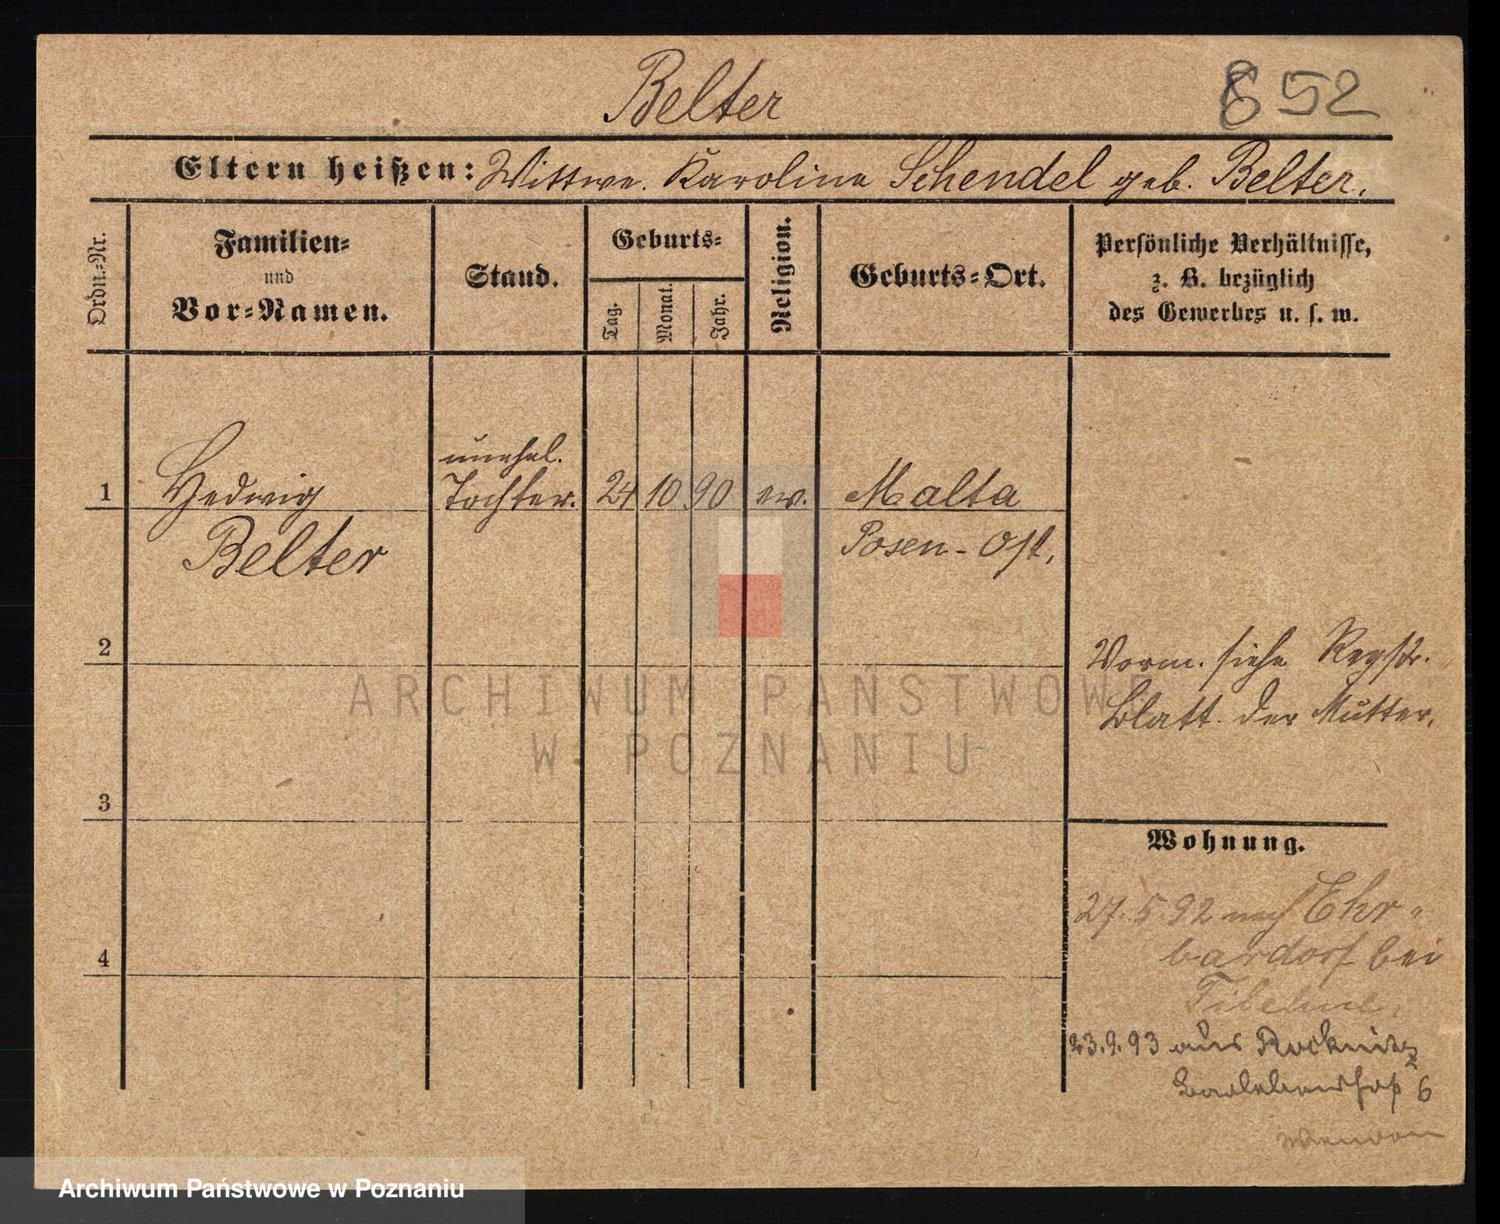 Belter
852
Eltern heißen: Wittwe. Karoline Schendel geb. Belter.
Ordn.-Nr.
Familien-
und
Vor-Namen.
Stand.
Geburts-
Tag.
Monat.
Jahr.
Religion.
Geburts-Ort.
Persönliche Verhältnisse,
z. B. bezüglich
des Gewerbes u. s. w.
unehel.
1 Hedwig Tochter. 24 10 90 ev. Malta
Belter Posen-Ost.
2
Vorm. siehe Regstr.
Blatt. der Mutter.
3
Wohnung.
27.5.92 nach Ehr-
bardorf bei
4
Filehne
23.9.93 aus
6
wenden
ARCHIWUM PAŃSTWOWE
W POZNANIU
Archiwum Państwowe w Poznaniu